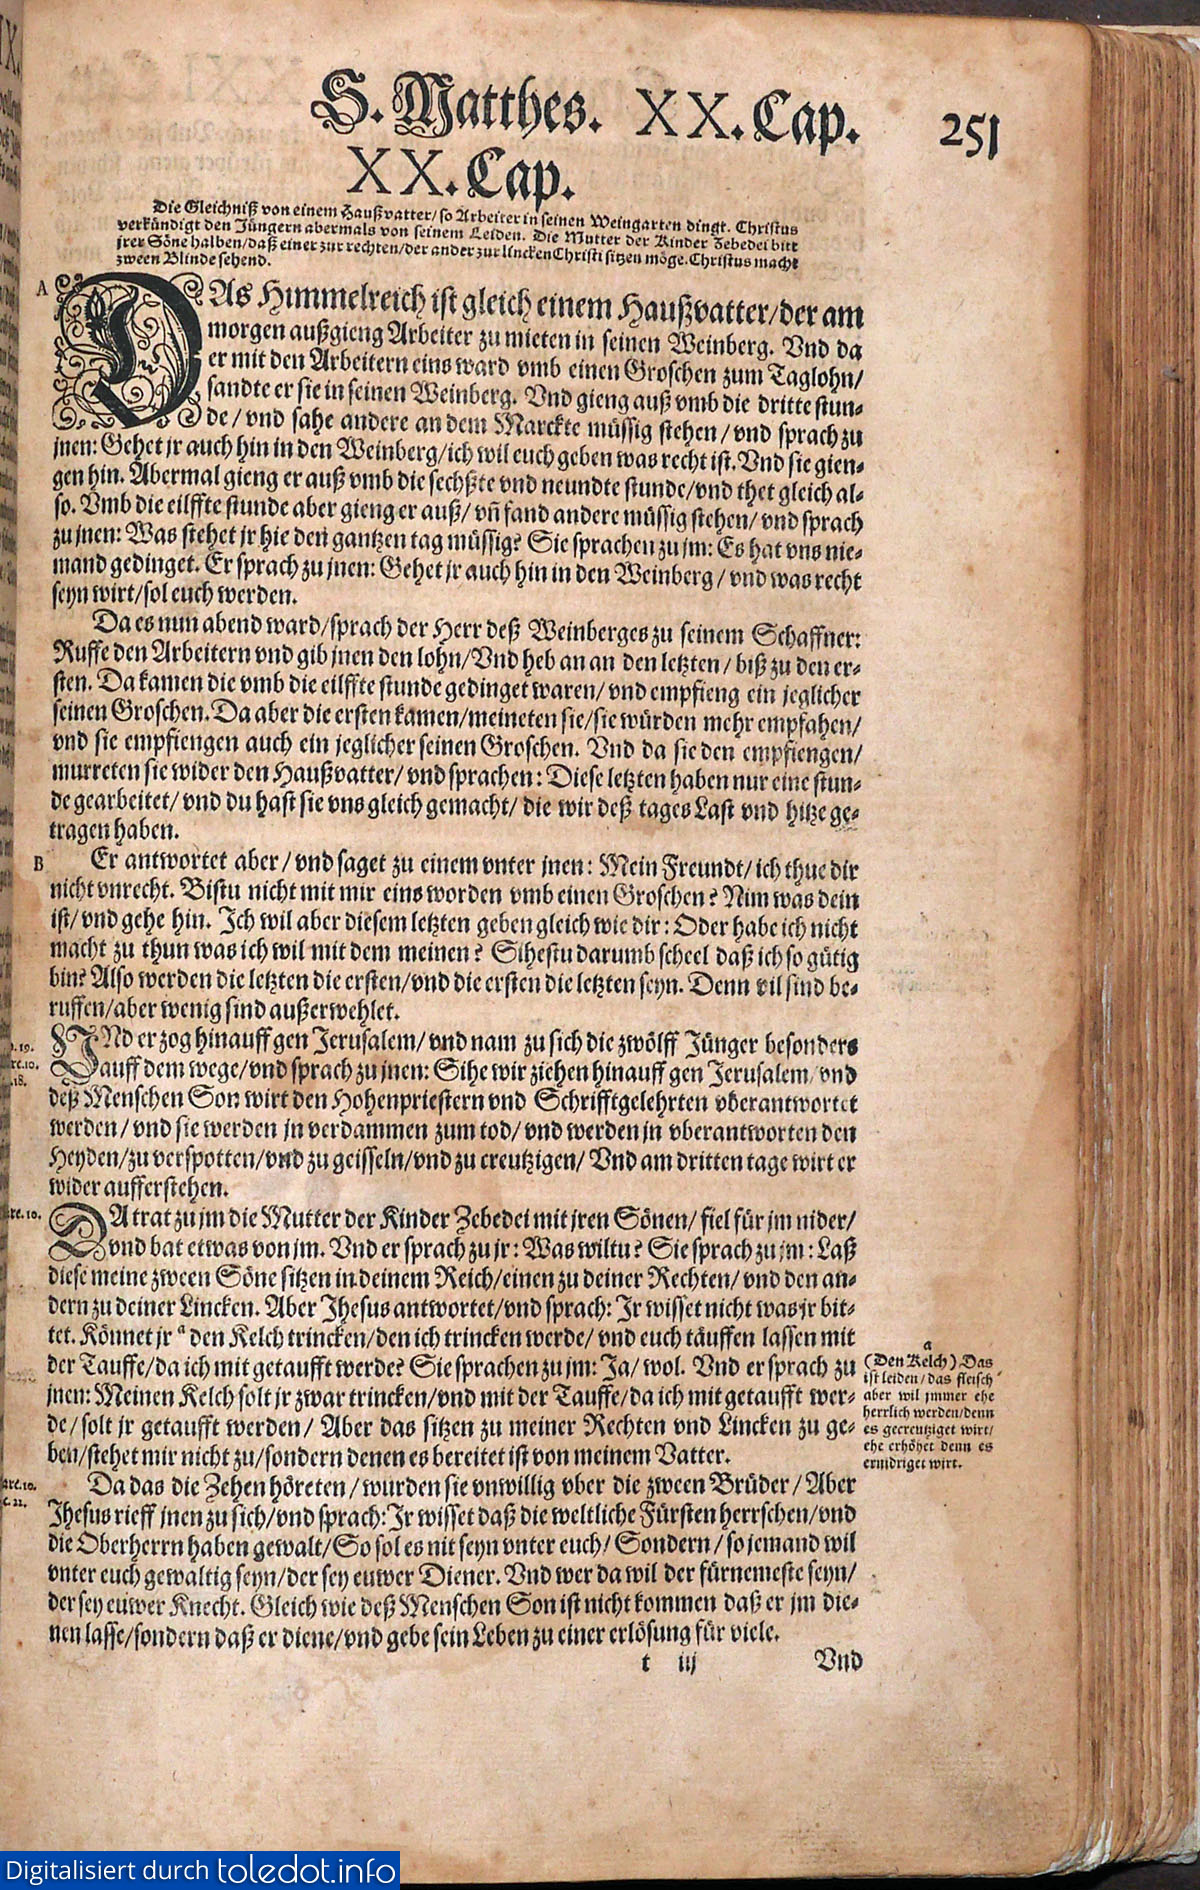 S. Matthes. XX. Cap. 251
XX. Cap.
Die Gleichniß von einem Haußvatter/ so Arbeiter in seinen Weingarten dingt. Christus
verkündigt den Jüngern abermals von seinem Leiden. Die Mutter der Kinder Zebedei bitt
jrer Söne halben/ daß einer zur rechten/ der ander zur lincken Christi sitzen möge. Christus macht
zween Blinde sehend.
A
DAs Himmelreich ist gleich einem Haußvatter/ der am
morgen außgieng Arbeiter zu mieten in seinen Weinberg. Vnd da
er mit den Arbeitern eins ward vmb einen Groschen zum Taglohn/
sandte er sie in seinen Weinberg. Vnd gieng auß vmb die dritte stun-
de/ vnd sahe andere an dem Marckte müssig stehen/ vnd sprach zu
jnen: Gehet jr auch hin in den Weinberg/ ich wil euch geben was recht ist. Vnd sie gien-
gen hin. Abermal gieng er auß vmb die sechßte vnd neundte stunde/ vnd thet gleich al-
so. Vmb die eilffte stunde aber gieng er auß/ vñ fand andere müssig stehen/ vnd sprach
zu jnen: Was stehet jr hie den gantzen tag müssig? Sie sprachen zu jm: Es hat vns nie-
mand gedinget. Er sprach zu jnen: Gehet jr auch hin in den Weinberg/ vnd was recht
seyn wirt/ sol euch werden.
Da es nun abend ward/ sprach der Herr deß Weinberges zu seinem Schaffner:
Ruffe den Arbeitern vnd gib jnen den lohn/ Vnd heb an an den letzten/ biß zu den er-
sten. Da kamen die vmb die eilffte stunde gedinget waren/ vnd empfieng ein jeglicher
seinen Groschen. Da aber die ersten kamen/ meineten sie/ sie würden mehr empfahen/
vnd sie empfiengen auch ein jeglicher seinen Groschen. Vnd da sie den empfiengen/
murreten sie wider den Haußvatter/ vnd sprachen: Diese letzten haben nur eine stun-
de gearbeitet/ vnd du hast sie vns gleich gemacht/ die wir deß tages Last vnd hitze ge-
tragen haben.
B
Er antwortet aber/ vnd saget zu einem vnter jnen: Mein Freundt/ ich thue dir
nicht vnrecht. Bistu nicht mit mir eins worden vmb einen Groschen? Nim was dein
ist/ vnd gehe hin. Ich wil aber diesem letzten geben gleich wie dir: Oder habe ich nicht
macht zu thun was ich wil mit dem meinen? Sihestu darumb scheel daß ich so gütig
bin? Also werden die letzten die ersten/ vnd die ersten die letzten seyn. Denn vil sind be-
ruffen/ aber wenig sind außerwehlet.
VNd er zog hinauff gen Jerusalem/ vnd nam zu sich die zwölff Jünger besonders
auff dem wege/ vnd sprach zu jnen: Sihe wir ziehen hinauff gen Jerusalem/ vnd
deß Menschen Son wirt den Hohenpriestern vnd Schrifftgelehrten vberantwortet
werden/ vnd sie werden jn verdammen zum tod/ vnd werden jn vberantworten den
Heyden/ zu verspotten/ vnd zu geisseln/ vnd zu creutzigen/ Vnd am dritten tage wirt er
wider aufferstehen.
DA trat zu jm die Mutter der Kinder Zebedei mit jren Sönen/ fiel für jm nider/
vnd bat etwas von jm. Vnd er sprach zu jr: Was wiltu? Sie sprach zu jm: Laß
diese meine zween Söne sitzen in deinem Reich/ einen zu deiner Rechten/ vnd den an-
dern zu deiner Lincken. Aber Jhesus antwortet/ vnd sprach: Jr wisset nicht was jr bit-
tet. Könnet jr a den Kelch trincken/ den ich trincken werde/ vnd euch täuffen lassen mit
der Tauffe/ da ich mit getaufft werde? Sie sprachen zu jm: Ja/ wol. Vnd er sprach zu
jnen: Meinen Kelch solt jr zwar trincken/ vnd mit der Tauffe/ da ich mit getaufft wer-
de/ solt jr getaufft werden/ Aber das sitzen zu meiner Rechten vnd Lincken zu ge-
ben/ stehet mir nicht zu/ sondern denen es bereitet ist von meinem Vatter.
a
(Den Kelch) Das
ist leiden/ das fleisch
aber wil jmmer ehe
herrlich werden/ denn
es gecreutziget wirt/
ehe erhöhet denn es
ernidriget wirt.
Da das die Zehen höreten/ wurden sie vnwillig vber die zween Brüder/ Aber
Jhesus rieff jnen zu sich/ vnd sprach: Jr wisset daß die weltliche Fürsten herrschen/ vnd
die Oberherrn haben gewalt/ So sol es nit seyn vnter euch/ Sondern/ so jemand wil
vnter euch gewaltig seyn/ der sey euwer Diener. Vnd wer da wil der fürnemeste seyn/
der sey euwer Knecht. Gleich wie deß Menschen Son ist nicht kommen daß er jm die-
nen lasse/ sondern daß er diene/ vnd gebe sein Leben zu einer erlösung für viele.
t iij Vnd
Digitalisiert durch toledot.info